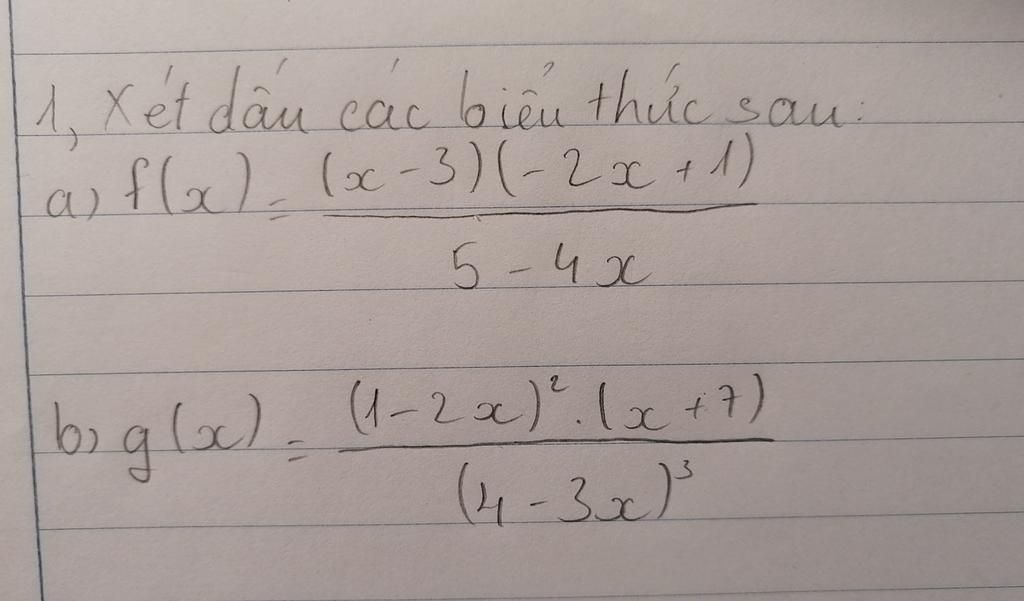 1, Xét dấu các biểu thức sau:
a) f(x) = (x - 3)(-2x + 1)
5 - 4x
b) g(x) = (1 - 2x)² . (x + 7)
(4 - 3x)³